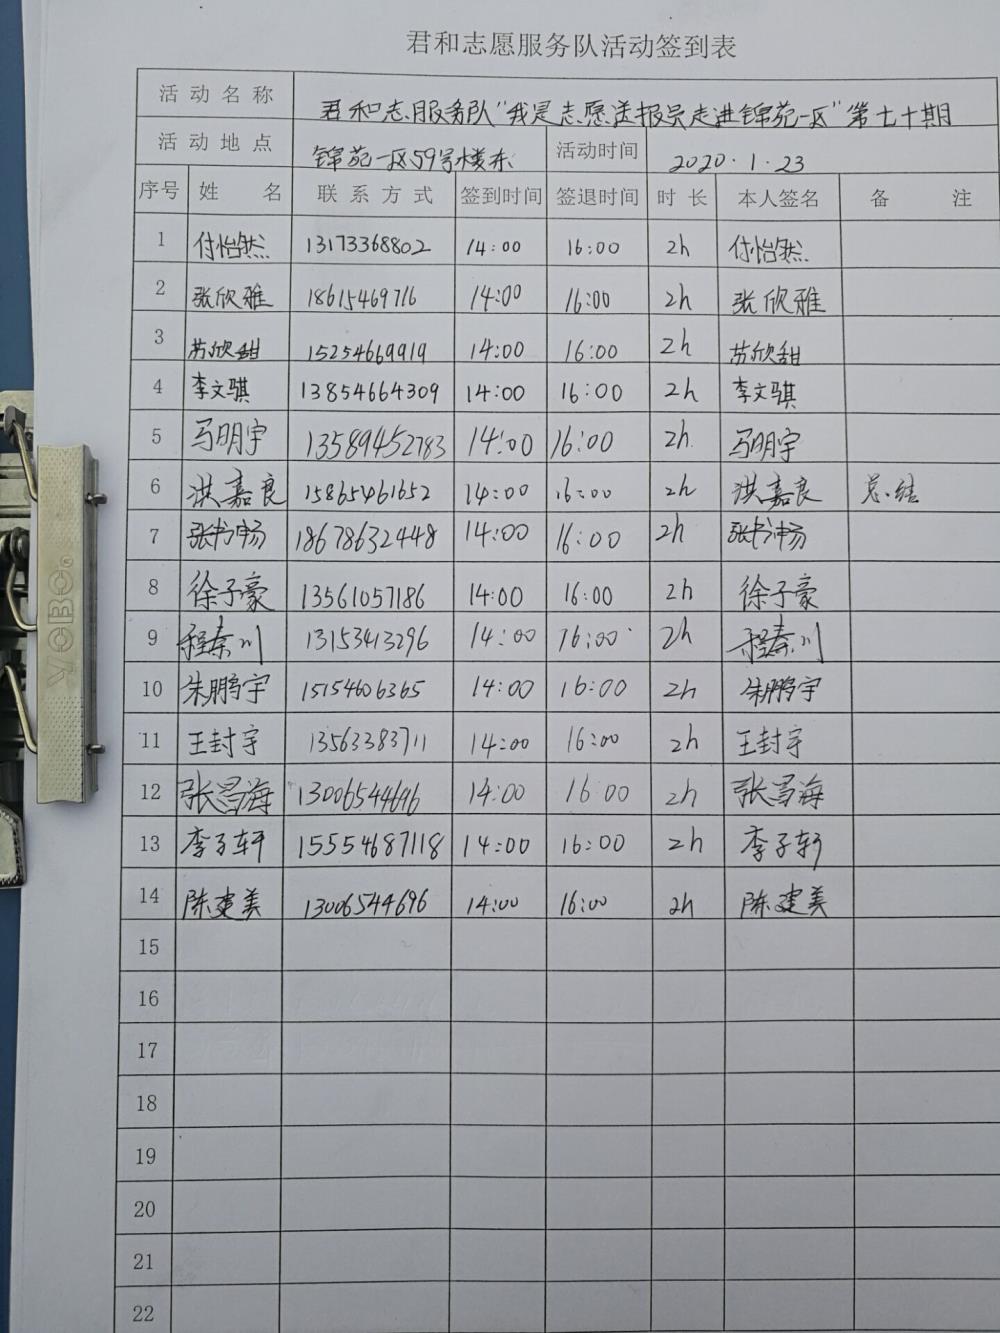 君和志愿服务队活动签到表
活动名称 君和志服务队“我是志愿送报员走进锦苑一区”第七十期
活动地点 锦苑一区59号楼东 活动时间 2020.1.23
序号 姓名 联系方式 签到时间 签退时间 时长 本人签名 备注
1 付怡然 13173368802 14:00 16:00 2h 付怡然
2 张欣雅 18615469716 14:00 16:00 2h 张欣雅
3 苏欣甜 15254669919 14:00 16:00 2h 苏欣甜
4 李文骐 13854664309 14:00 16:00 2h 李文骐
5 马明宇 13589452783 14:00 16:00 2h 马明宇
6 洪嘉良 15865461652 14:00 16:00 2h 洪嘉良 总结
7 张书畅 18678632448 14:00 16:00 2h 张书畅
8 徐子豪 13561057186 14:00 16:00 2h 徐子豪
9 程秦川 13153413296 14:00 16:00 2h 程秦川
10 朱鹏宇 15154606365 14:00 16:00 2h 朱鹏宇
11 王封宇 13563383711 14:00 16:00 2h 王封宇
12 张昌海 13006544696 14:00 16 00 2h 张昌海
13 李子轩 15554687118 14:00 16:00 2h 李子轩
14 陈建美 13006544696 14:00 16:00 2h 陈建美
15
16
17
18
19
20
21
22
YOBO